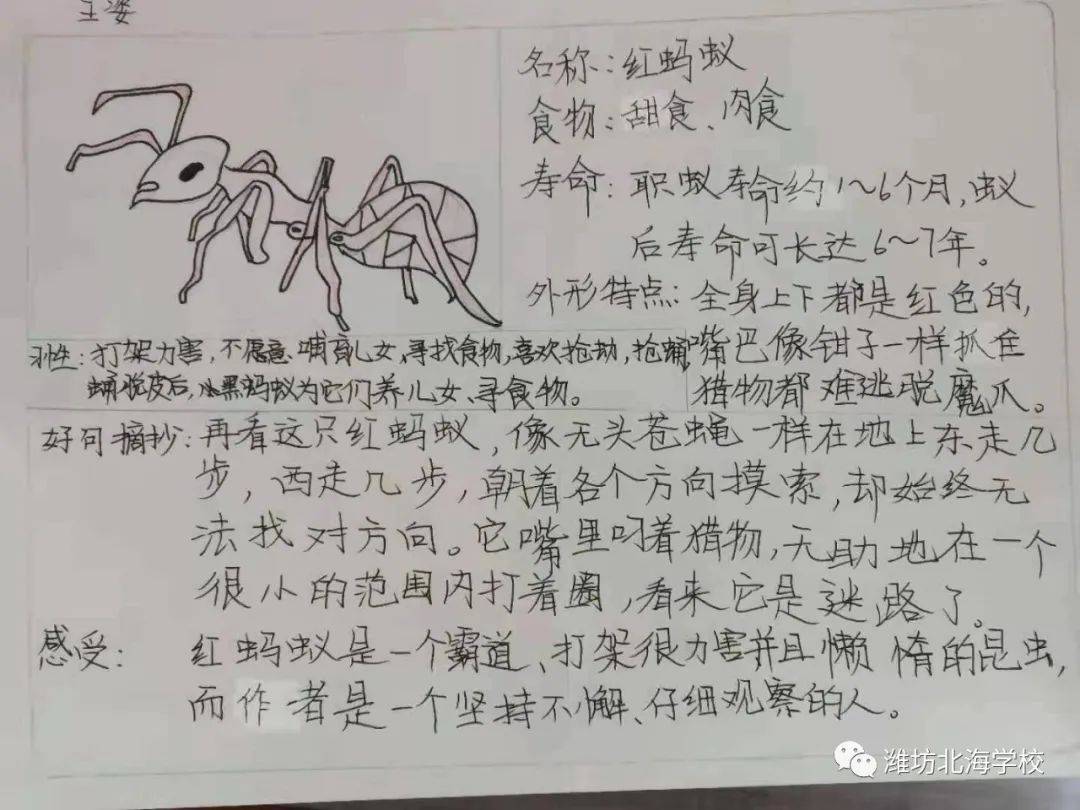 王姿
名称：红蚂蚁
食物：甜食、肉食
寿命：职蚁寿命约1～6个月，蚁
后寿命可长达6～7年。
外形特点：全身上下都是红色的，
嘴巴像钳子一样抓住
猎物都难逃脱魔爪。
习性：打架力害，不愿意哺育儿女，寻找食物，喜欢抢劫，抢蛹，
蛹脱皮后，小黑蚂蚁为它们养儿女、寻食物。
好句摘抄：再看这只红蚂蚁，像无头苍蝇一样在地上东走几
步，西走几步，朝着各个方向摸索，却始终无
法找对方向。它嘴里叼着猎物，无助地在一个
很小的范围内打着圈，看来它是迷路了。
感受：红蚂蚁是一个霸道、打架很力害并且懒惰的昆虫，
而作者是一个坚持不懈、仔细观察的人。
潍坊北海学校